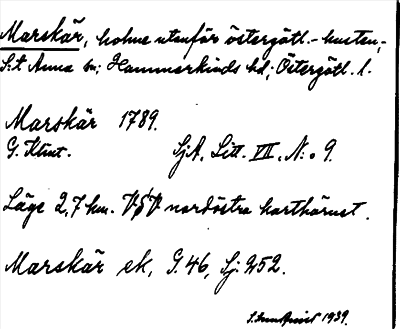 Marskär, holme utanför östergötl.-kusten,
S:t Anna sn; Hammarkinds hd; Östergötl. l.
Marskär 1789.
G. Klint. SjA. Litt. VII. N:o 9.
Läge 2,7 km. VSV nordöstra karthörnet.
Marskär ek, G. 46, Sj. 252.
1939.